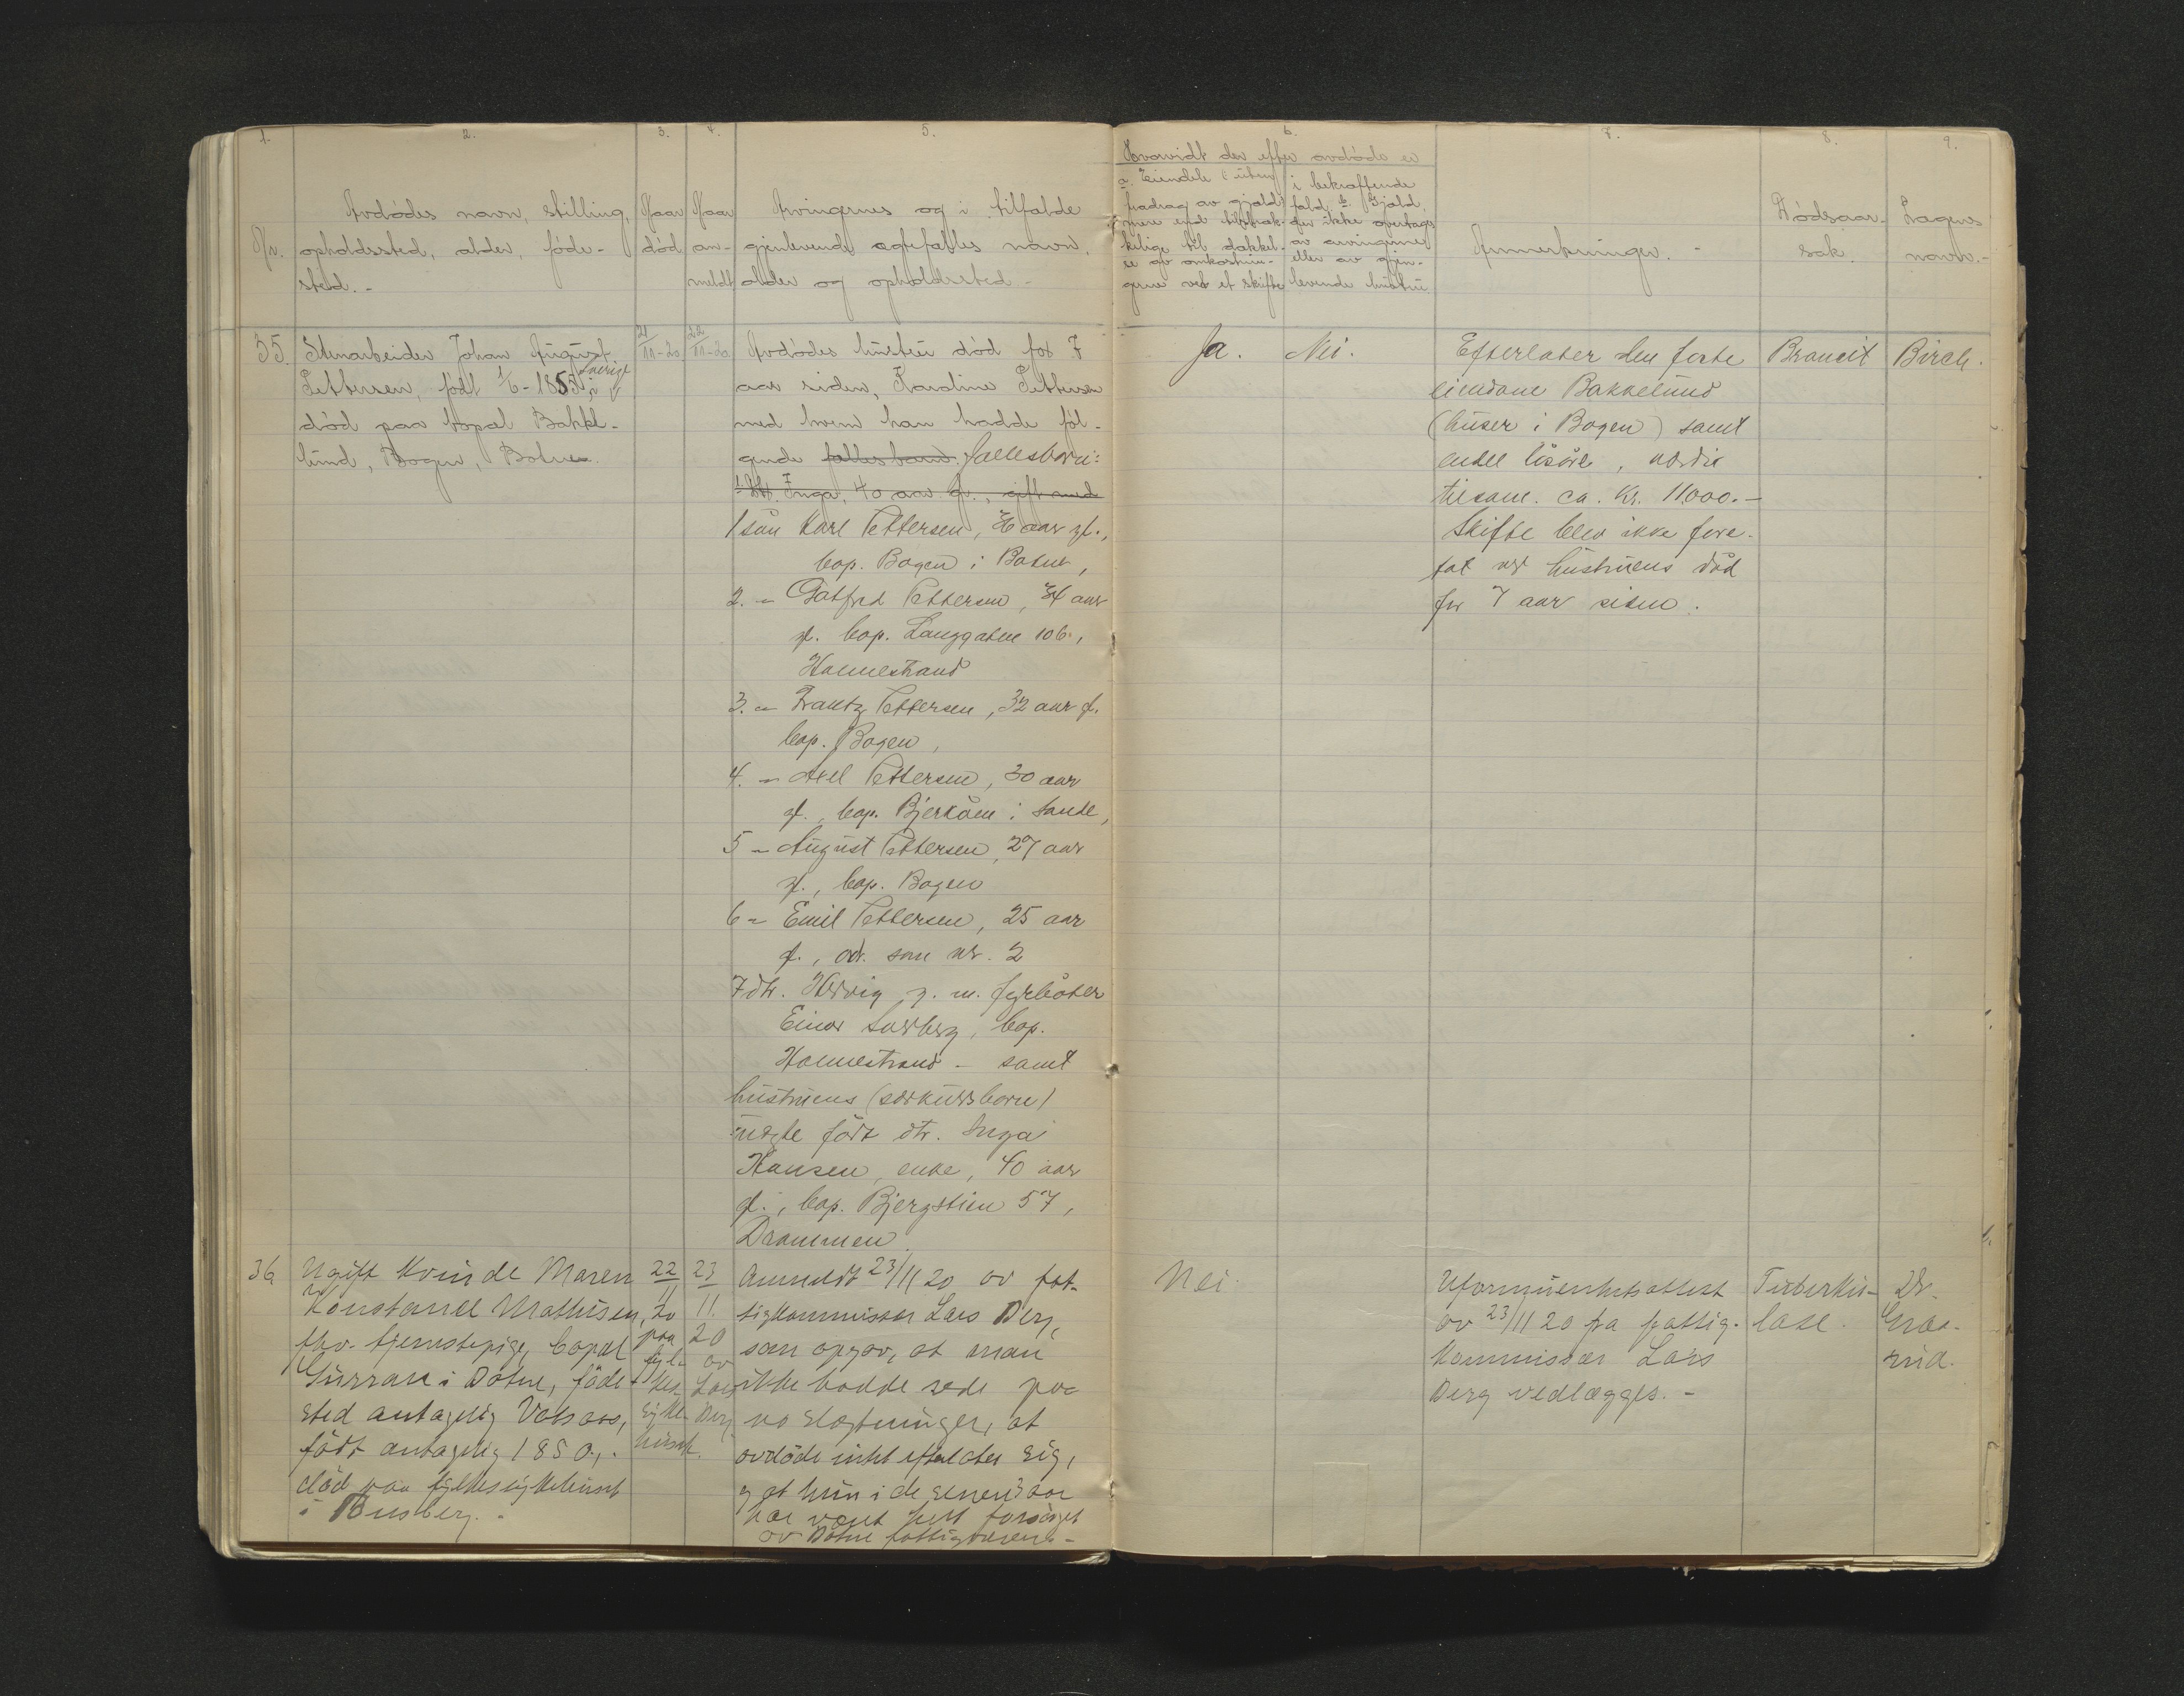 1. 2. 3. 4. 5. 6. 7. 8. 9.
Nr.
Avdødes navn, stilling,
opholdssted, alder, føde-
sted.-
Naar
død
Naar
an-
meldt
Arvingernes og i tilfælde
gjenlevende ægtefælles navn,
alder og opholdssted -
Hvorvidt der efter avdøde er
a. Eiendele (: uten
fradrag av gjæld)
mere end tilstræk-
kelige til dækkel-
se av omkostnin-
gerne ved et skifte
i bekræftende
fald b. Gjæld,
der ikke overtages
av arvingerne
eller av gjen-
levende hustru
Anmerkninger. -
Dødsaar-
sak.
Lægens
navn.-
35.
Stenarbeider Johan August
Pettersen, født 1/6-1855 i Sverige
død paa bopæl Bakke-
lund, Bogen, Botne.
21/11-20
22/11-20
Avdødes hustru død for 7
aar siden, Karoline Pettersen
med hvem han hadde føl-
gende fællesbarn. fællesbørn:
1 Dtr. Inga, 40 aar gl., gift med
1 søn Karl Pettersen, 36 aar gl.,
bop. Bogen i Botne,
2. " Gotfred Pettersen, 34 aar
gl. bop. Langgaten 106,
Holmestrand
3. " Frantz Pettersen, 32 aar gl.
bop. Bogen,
4. " Axel Pettersen, 30 aar
gl., bop. Bjerkøen i Sande,
5 " August Pettersen, 27 aar
gl., bop. Bogen
6 " Emil Pettersen, 25 aar
gl., adr. som nr. 2
7 dtr. Hedvig g. m. fyrbøter
Einar , bop.
Holmestrand - samt
hustruens (særkuldsbarn)
uegte født dtr. Inga
Hansen, enke, 40 aar
gl., bop. Bjergstien 57,
Drammen.
Ja.
Nei.
Efterlater den faste
eiendom Bakkelund
(huser i Bogen) samt
endel løsøre, værdi
tilsam. ca. Kr. 11000.-
Skifte blev ikke fore-
tat ved hustruens død
for 7 aar siden.
Brancit
Birch.
36
Ugift kvinde Maren
Konstance Mathisen,
fhv. tjenestepige, bopæl
i Botne, føde-
sted antagelig Vaasaas,
født antagelig 1850,.
død paa fylkessykehuset
i Tønsberg. -
22/11 20
paa
fyl-
kes
syke-
huset.
23/11. 20
av
Lars
Berg
Anmeldt 23/11 20 av fat-
tigkommissær Lars Berg,
som opgav, at man
ikke hadde rede paa
no slegtninger, at
avdøde intet efterlater sig,
og at hun i de senere aar
har været helt forsørget
av Botne fattigvæsen. -
Nei.
Uformuenhetsattest
av 23/11 20 fra fattig-
kommissær Lars
Berg vedlægges. -
Tuberku-
lose.
Dr.